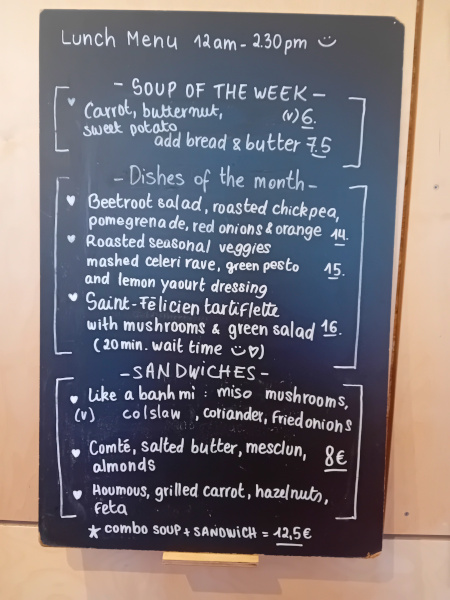 Lunch Menu 12am - 2.30pm
- SOUP OF THE WEEK -
Carrot, butternut, (v) 6.
sweet potato
add bread & butter 7.5
- Dishes of the month -
Beetroot salad, roasted chickpea,
pomegrenade, red onions & orange 14.
Roasted seasonal veggies
mashed celeri rave, green pesto 15.
and lemon yaourt dressing
Saint-Félicien tartiflette
with mushrooms & green salad 16.
(20min. wait time)
- SANDWICHES -
like a banh mi : miso mushrooms,
(v) colslaw, coriander, fried onions
Comté, salted butter, mesclun, 8€
almonds
Houmous, grilled carrot, hazelnuts,
feta
★ combo SOUP + SANDWICH = 12,5€